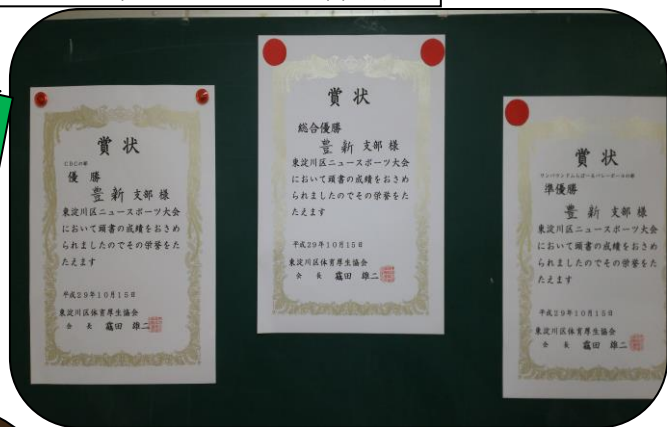 賞状
優勝
豊新 支部 様
東淀川区ニュースポーツ大会
において頭書の成績をおさめ
られましたのでその栄誉をた
たえます
平成29年10月15日
東淀川区体育厚生協会
会長 竈田 雄二
賞状
総合優勝
豊新 支部 様
東淀川区ニュースポーツ大会
において頭書の成績をおさめ
られましたのでその栄誉を
たたえます
平成29年10月15日
東淀川区体育厚生協会
会長 竈田 雄二
賞状
準優勝
豊新 支部 様
東淀川区ニュースポーツ大会
において頭書の成績をおさめ
られましたのでその栄誉をた
たえます
平成29年10月15日
東淀川区体育厚生協会
会長 竈田 雄二